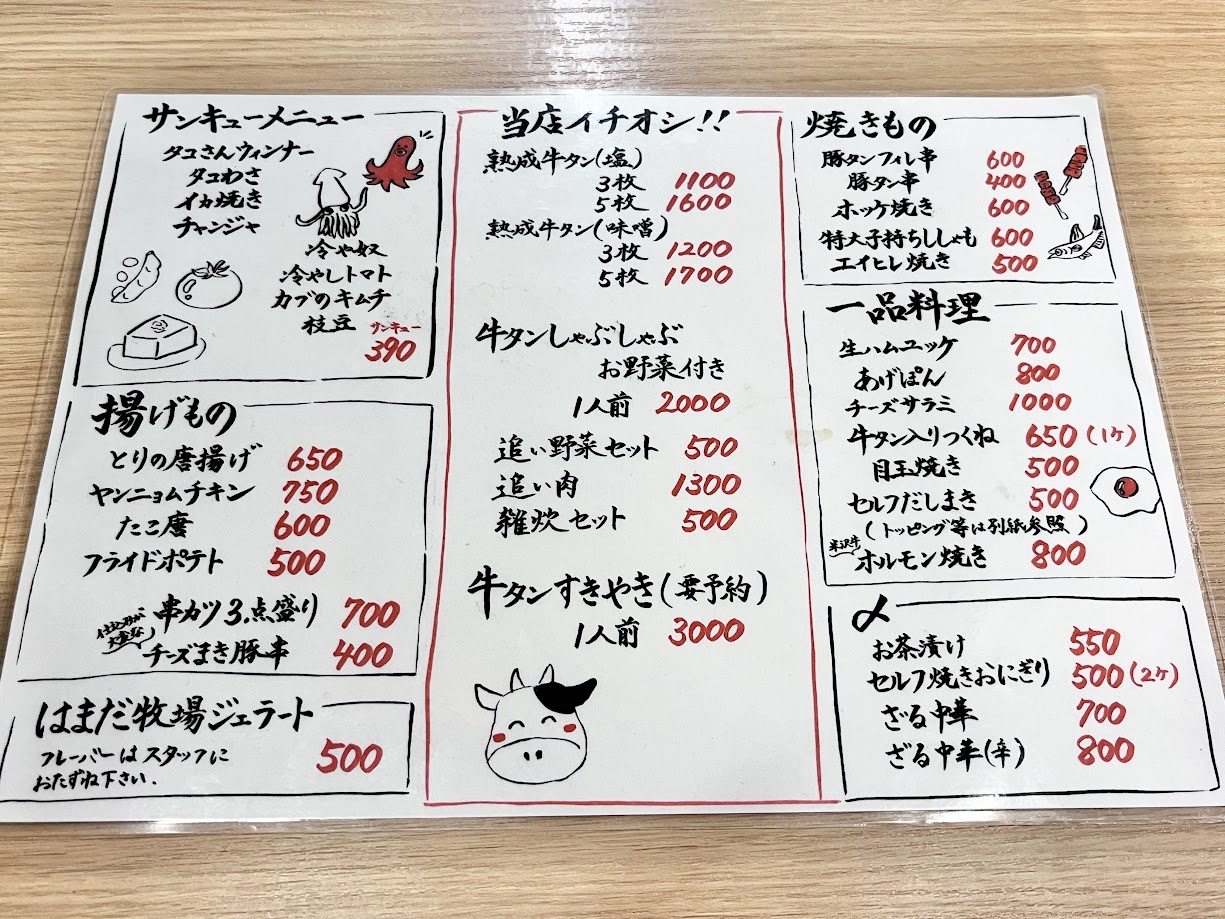 サンキューメニュー
タコさんウィンナー
タコわさ
イカ焼き
チャンジャ
冷や奴
冷やしトマト
カブのキムチ
枝豆
サンキュー
390
揚げもの
とりの唐揚げ 650
ヤンニョムチキン 750
たこ唐 600
フライドポテト 500
串カツ3点盛り 700
チーズまき豚串 400
はまだ牧場ジェラート
フレーバーはスタッフに
おたずね下さい.
500
当店イチオシ!!
熟成牛タン(塩)
3枚 1100
5枚 1600
熟成牛タン(味噌)
3枚 1200
5枚 1700
牛タンしゃぶしゃぶ
お野菜付き
1人前 2000
追い野菜セット 500
追い肉 1300
雑炊セット 500
牛タンすきやき(要予約)
1人前 3000
焼きもの
豚タンフィレ串 600
豚タン串 400
ホッケ焼き 600
特大子持ちししゃも 600
エイヒレ焼き 500
一品料理
生ハムユッケ 700
あげぽん 800
チーズサラミ 1000
牛タン入りつくね 650(1ケ)
目玉焼き 500
セルフだしまき 500
(トッピング等は別紙参照)
米沢牛
ホルモン焼き 800
〆
お茶漬け 550
セルフ焼きおにぎり 500(2ケ)
ざる中華 700
ざる中華(辛) 800